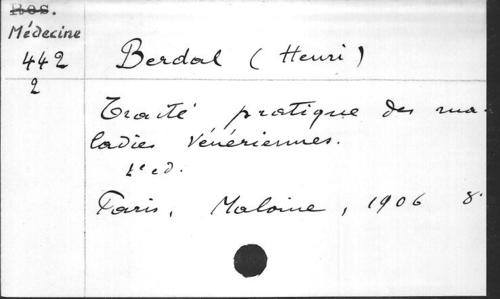 Res.
Médecine
442
2
Berdal (Henri)
Traité pratique des ma-
ladies vénériennes.
éd.
Paris, Maloine, 1906 8°